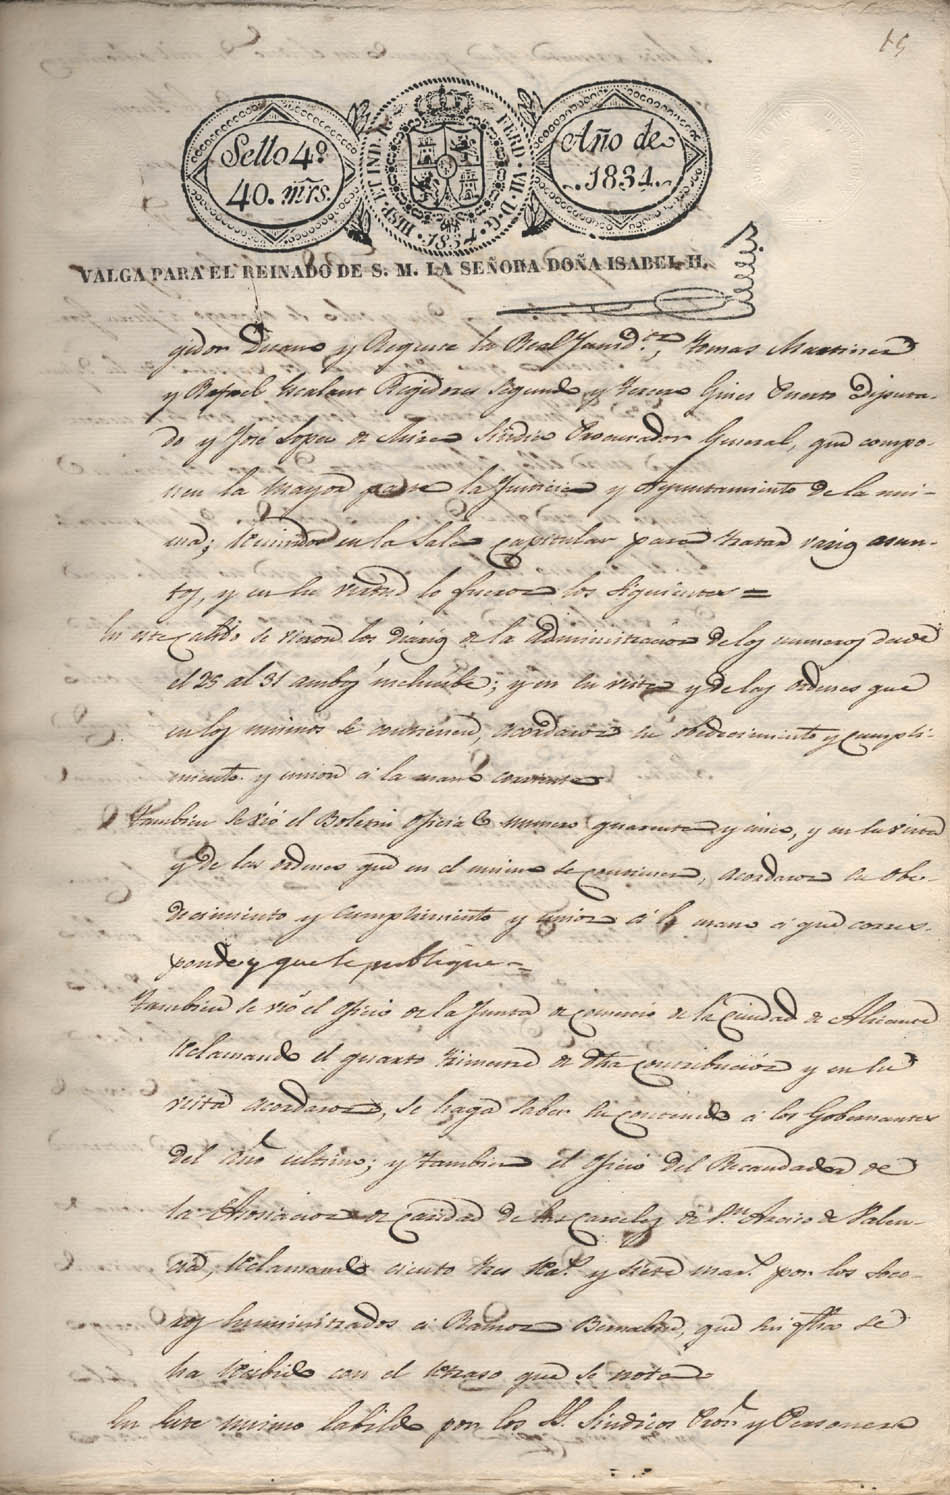 15
Sello 4º
40. mrs.
HISP. ET IND. R. FERD. VII. D. G. 1834.
Año de
1834.
VALGA PARA EL REINADO DE S. M. LA SEÑORA DOÑA ISABEL II.
gidor Decano y Regente la Real Jurisd.on, Tomas Martinez
y Rafael Regidores Segundo y tercero Gines Puerto Diputa-
do y José Lopez de Sindico Procurador General, que compo-
nen la mayor parte la Justicia y Ayuntamiento de la mis-
ma; reunidos en la Sala capitular para tratar varios asun-
tos, y en su virtud lo fueron los Siguientes =
En este Cabildo se vieron los diarios de la administracion de los numeros desde
el 25 al 31 ambos inclusibe; y en su vista y de las ordenes que
en los mismos se contienen, acordaron su obedecimiento y cumpli-
miento y union á la mano corriente
Tambien se vió el Boletin oficial numero quarenta y cinco, y en su vista
y de las ordenes que en el mismo se contienen, acordaron su obe-
decimiento y cumplimiento y union á la mano á que corres-
ponde y que se publique =
Tambien se vió el oficio de la Junta de comercio de la Ciudad de Alicante
reclamando el quarto trimestre de dha contribución y en su
vista acordaron, se haga saber su contenido á los Gobernantes
del año ultimo; y tambien el oficio del Recaudador de
la Asociacion de caridad de las carceles de S.n de Valen-
cia, reclamando ciento tres rs. y siete mars. por los soco-
rros suministrados á Ramon Bernabeu, que su ofìo se
ha recibido con el retraso que se nota
En este mismo Cabildo por los SS. Sindicos Pror. y Personero